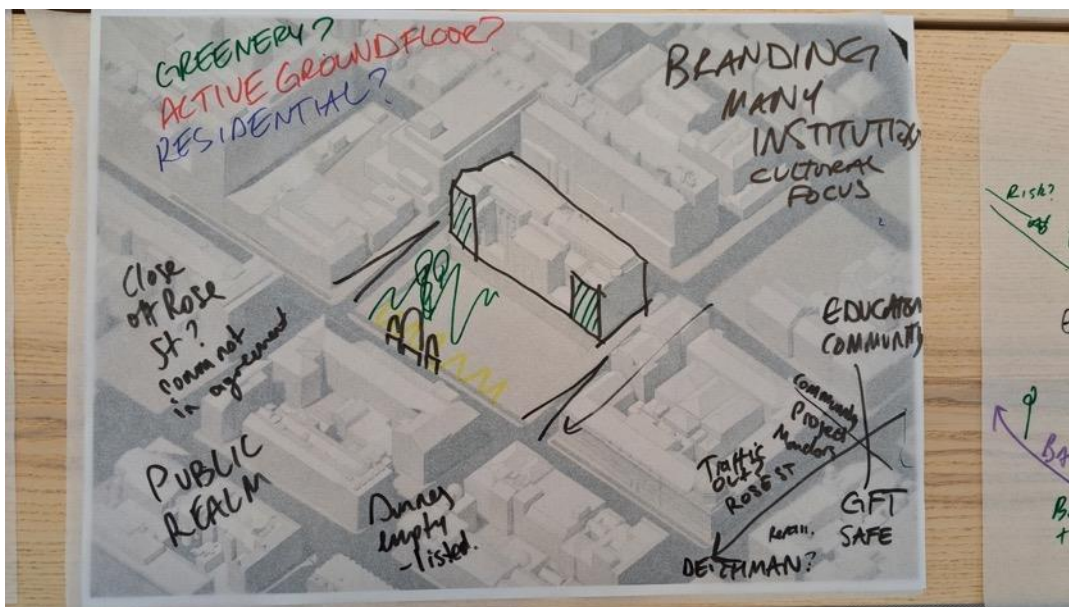 GREENERY?
ACTIVE GROUNDFLOOR?
RESIDENTIAL?
BRANDING
MANY
INSTITUTIONS
CULTURAL
FOCUS
Close
off Rose
St?
comm not
in agreement
PUBLIC
REALM
empty
- listed.
EDUCATION
COMMUNITY
Community
Project
Traffic
Out?
ROSE ST
GFT
SAFE
Retail.
DEICHMAN?
Risk?
BA
B
+